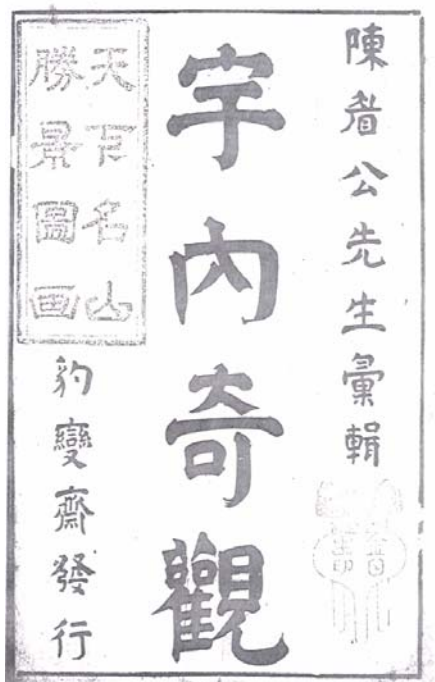 陳眉公先生彙輯
宇內奇觀
天下名山
勝景圖画
豹變齋發行